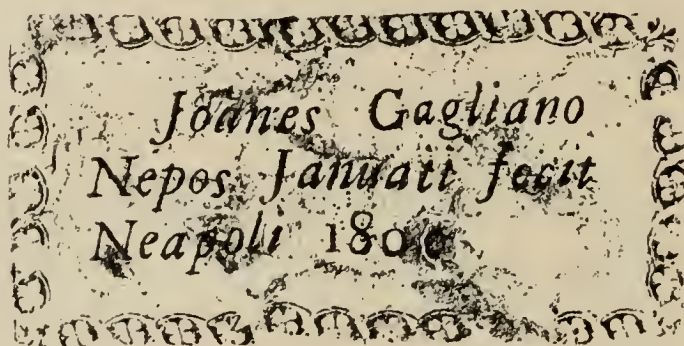 Joanes Gagliano
Nepos Januarii fecit
Neapoli 1800